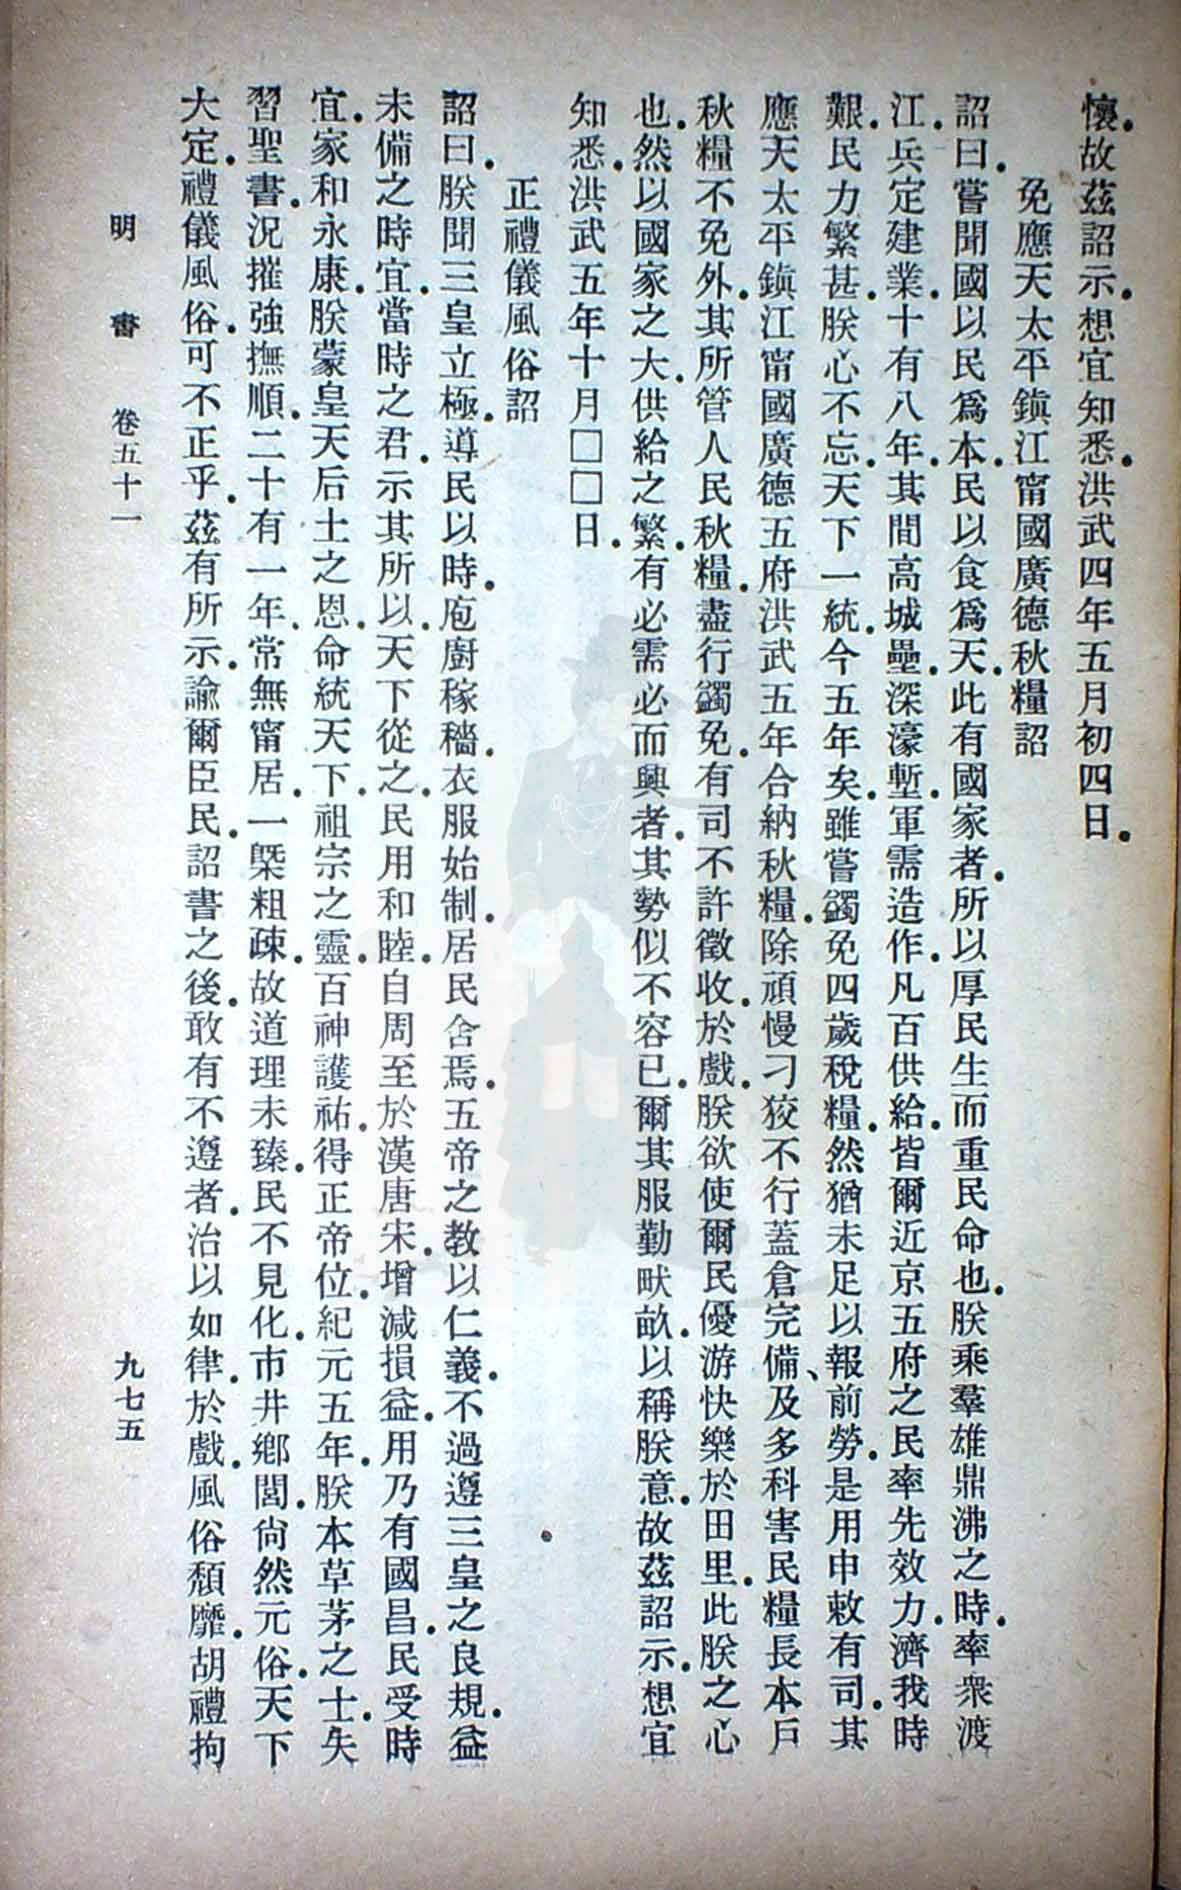 懷．故茲詔示．想宜知悉．洪武四年五月初四日．
免應天太平鎮江甯國廣德秋糧詔
詔曰．嘗聞國以民爲本．民以食爲天．此有國家者．所以厚民生而重民命也．朕乘羣雄鼎沸之時．率衆渡
江．兵定建業．十有八年．其間高城壘．深濠塹．軍需造作．凡百供給．皆爾近京五府之民率先效力．濟我時
艱．民力繁甚．朕心不忘．天下一統．今五年矣．雖嘗蠲免四歲稅糧．然猶未足以報前勞．是用申敕有司．其
應天太平鎮江甯國廣德五府洪武五年合納秋糧．除頑慢刁狡不行蓋倉完備、及多科害民糧長本戶
秋糧不免外．其所管人民秋糧．盡行蠲免．有司不許徵收．於戲．朕欲使爾民優游快樂於田里．此朕之心
也．然以國家之大．供給之繁．有必需必而興者．其勢似不容已．爾其服勤畎畝．以稱朕意．故茲詔示．想宜
知悉．洪武五年十月□□日．
正禮儀風俗詔
詔曰．朕聞三皇立極．導民以時．庖廚稼穡．衣服始制．居民舍焉．五帝之教以仁義．不過遵三皇之良規．益
未備之時宜．當時之君．示其所以．天下從之．民用和睦．自周至於漢唐宋．增減損益．用乃有國昌．民受時
宜．家和永康．朕蒙皇天后土之恩．命統天下．祖宗之靈．百神護祐．得正帝位．紀元五年．朕本草茅之士．失
習聖書．況摧強撫順．二十有一年．常無甯居．一槩粗疎．故道理未臻．民不見化．市井鄉閭．尙然元俗．天下
大定．禮儀風俗．可不正乎．茲有所示．諭爾臣民．詔書之後．敢有不遵者．治以如律．於戲．風俗頹靡．胡禮拘
明書 卷五十一 九七五